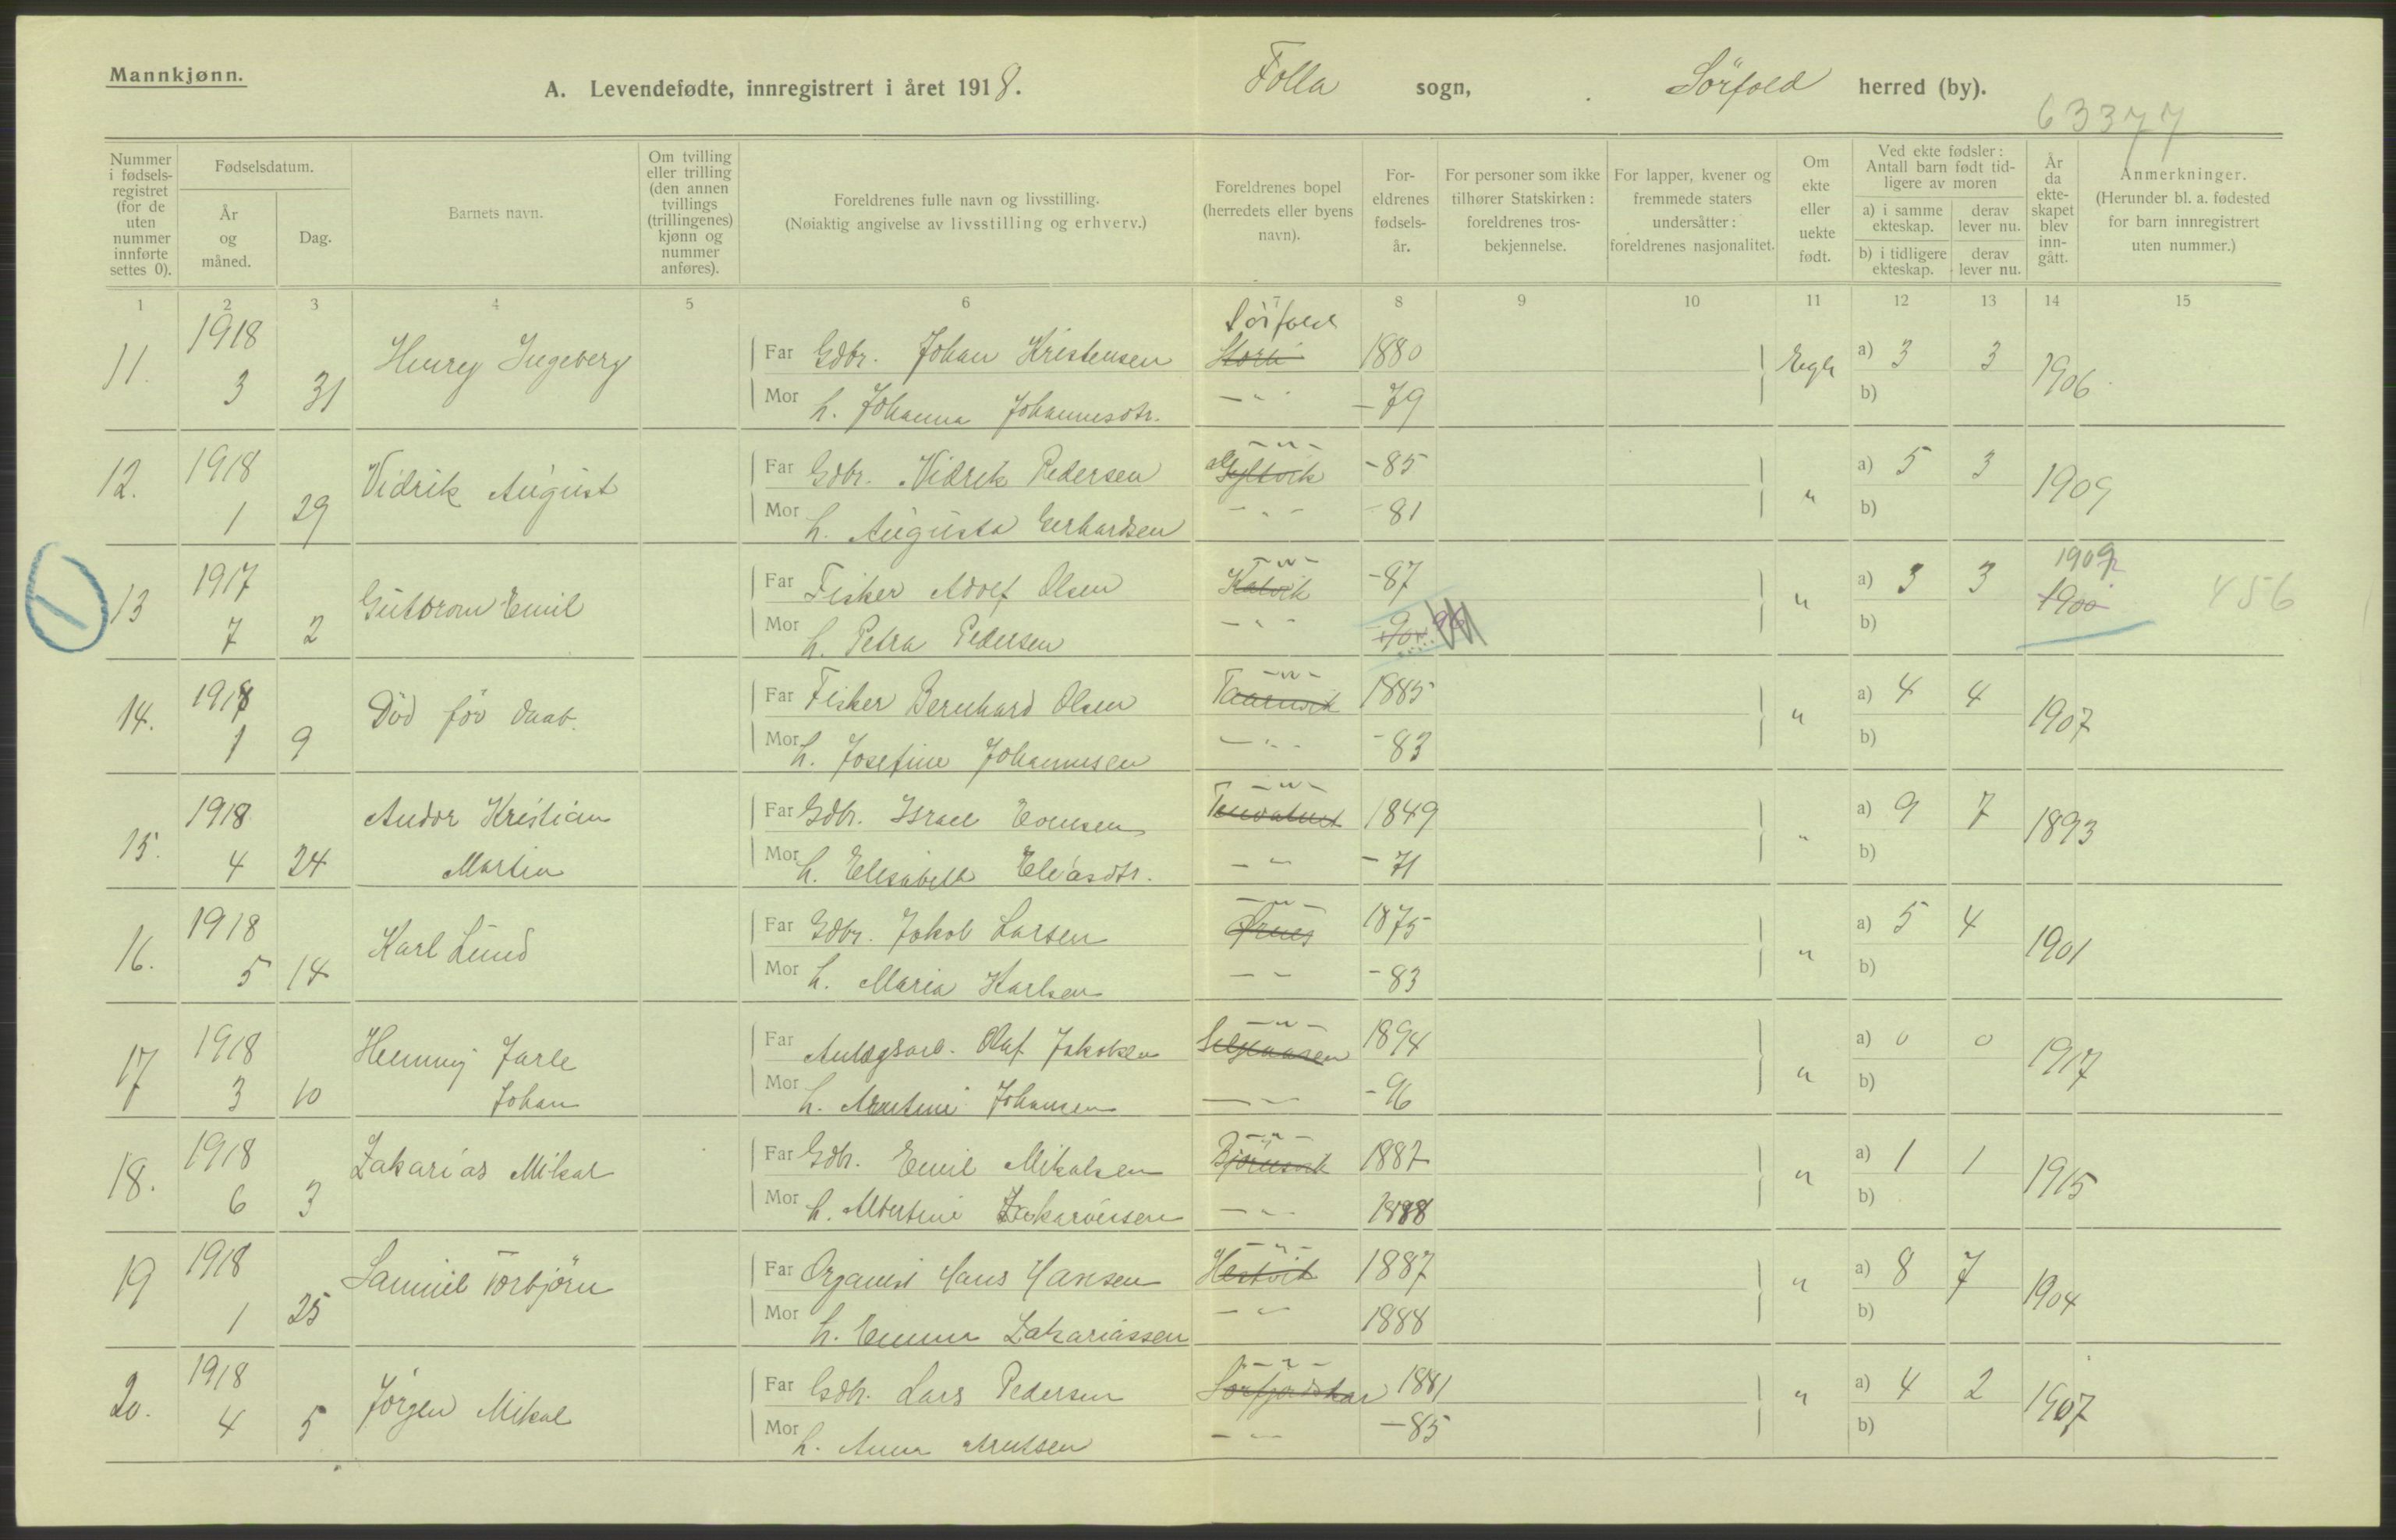 Mannkjønn.
A. Levendefødte, innregistrert i året 1918.
Folla sogn, Sörfold herred (by).
63377
Nummer i fødsels-registret (for de uten nummer innførte settes 0).
Fødselsdatum.
År og måned.
Dag.
Barnets navn.
Om tvilling eller trilling (den annen tvillings (trillingenes) kjønn og nummer anføres).
Foreldrenes fulle navn og livsstilling.
(Nøiaktig angivelse av livsstilling og erhverv.)
Foreldrenes bopel (herredets eller byens navn).
For-eldrenes fødsels-år.
For personer som ikke tilhører Statskirken: foreldrenes tros-bekjennelse.
For lapper, kvener og fremmede staters undersåtter: foreldrenes nasjonalitet.
Om ekte eller uekte født.
Ved ekte fødsler: Antall barn født tid-ligere av moren
a) i samme ekteskap.
derav lever nu.
b) i tidligere ekteskap.
derav lever nu.
År da ekte-skapet blev inn-gått.
Anmerkninger.
(Herunder bl. a. fødested for barn innregistrert uten nummer.)
1 2 3 4 5 6 7 8 9 10 11 12 13 14 15
Sörfold
11. 1918 3 31 Henry Ingeberg
Far Gdbr. Johan Kristensen 1880 a) 3 3 1906
Mor h. Johanna Johannesdtr. - " - - 79 b)
- " -
12. 1918 1 29 Vidrik August
Far Gdbr. Vidrik Pedersen Gyltvik - 85 " a) 5 3 1909
Mor h. Augusta Gerhardsen - " - - 81 b)
- " -
1
13 1917 7 2 Guttorm Emil
Far Fisker Adolf Olsen Kalvik - 87 " a) 3 3 1909 1900 456
Mor h. Petra Pedersen - " - - 90 96 b)
- " -
14. 1918 1 9 Död för daab.
Far Fisker Bernhard Olsen Taarnvik 1885 " a) 4 4 1907
Mor h. Josefine Johannesen - " - - 83 b)
- " -
15. 1918 4 24 Andor Kristian Martin
Far Gdbr. Israel 1849 " a) 9 7 1893
Mor h. Elisabeth Eliasdtr. - " - - 71 b)
- " -
16. 1918 5 14 Karl Lund
Far Gdbr. Jakob Larsen 1875 " a) 5 4 1901
Mor h. Maria Karlsen - " - - 83 b)
- " -
17 1918 3 10 Henning Jarle Johan
Far Anlægsarb. Olaf Jakobsen 1894 " a) 0 0 1917
Mor h. Arntine Johansen - " - - 96 b)
- " -
18. 1918 6 3 Zakarias Mikal
Far Gdbr. Emil Mikalsen Björnsvik 1887 " a) 1 1 1915
Mor h. Albertine Zakariassen - " - 1888 b)
- " -
19 1918 1 25 Samuel Torbjörn
Far Organist Hans Hansen Hestvik 1887 " a) 8 7 1904
Mor h. Emma Zakariassen - " - 1888 b)
- " -
20. 1918 4 5 Jörgen Mikal
Far Gdbr. Lars Pedersen 1881 " a) 4 2 1907
Mor h. Anna Arntsen - " - - 85 b)